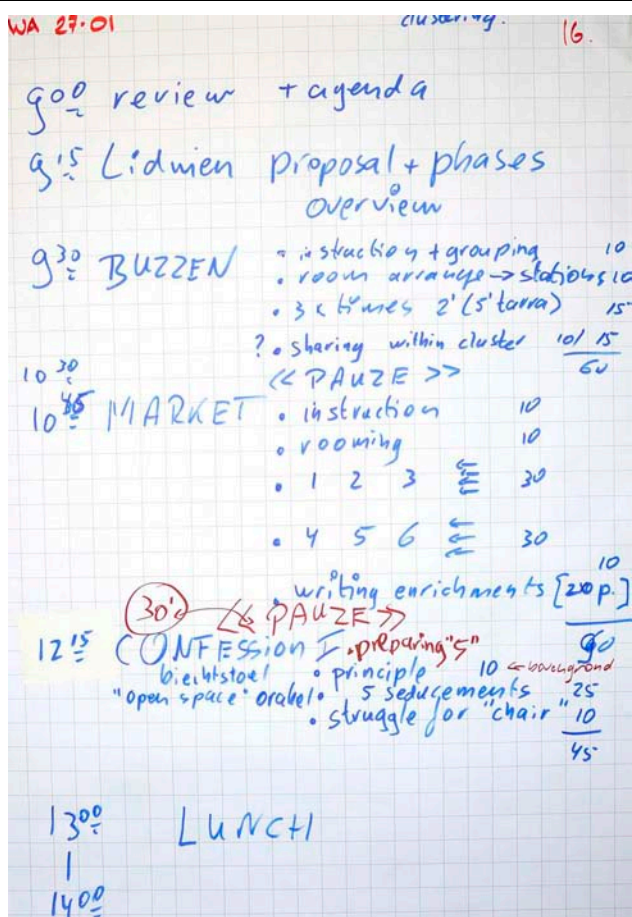 WA 27.01
clustering.
16.
9 00 review + agenda
9 15 Lidwien proposal + phases
overview
9 30 BUZZEN • instruction + grouping 10
• room arrange → stations 10
• 3 x times 2' (5' tarra) 15
? • sharing within cluster 10/15
60
10 30 << PAUZE >>
10 45 MARKET • instruction 10
• rooming 10
• 1 2 3 30
• 4 5 6 30
10
• writing enrichments [20 p.]
30' << PAUZE >>
90
12 15 CONFESSION I • preparing "5"
biechtstoel • principle 10 ← background
"open space" orakel • 5 seducements 25
• struggle for "chair" 10
45
13 00 LUNCH
|
14 00